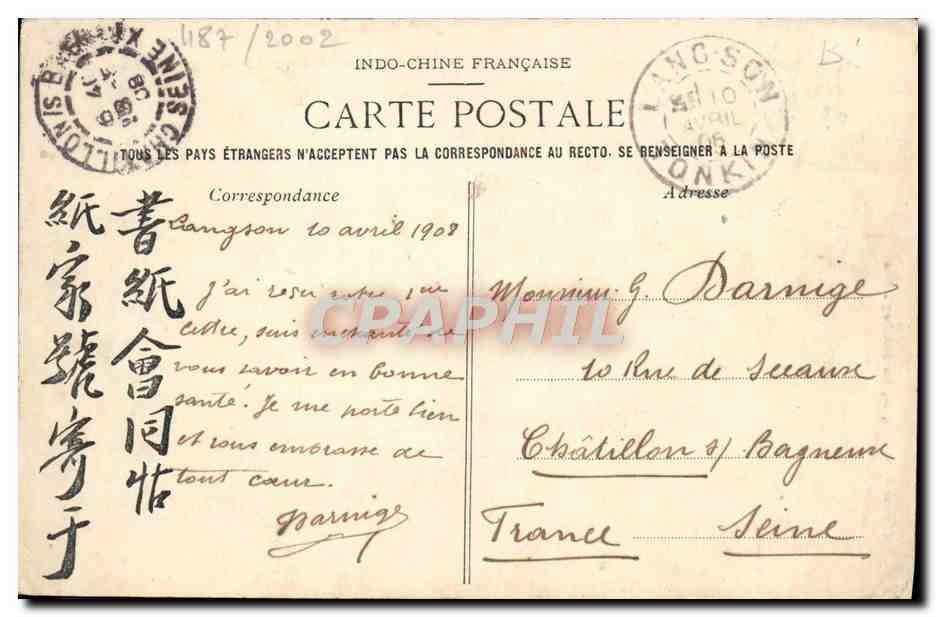 4187/2002
B
INDO-CHINE FRANÇAISE
CARTE POSTALE
TOUS LES PAYS ÉTRANGERS N'ACCEPTENT PAS LA CORRESPONDANCE AU RECTO. SE RENSEIGNER A LA POSTE
LANG-SON
10
AVRIL
TONKIN
SEINE
08
Correspondance
Langson 10 avril 1908
J'ai reçu votre
lettre, suis enchanté de
vous savoir en bonne
santé. Je me porte bien
et vous embrasse de
tout cœur.
Darnige
書紙會同
紙家號寄于
Adresse
Monsieur G. Darnige
10 Rue de Sceaux
Châtillon s/ Bagneux
France Seine
CPAPHIL